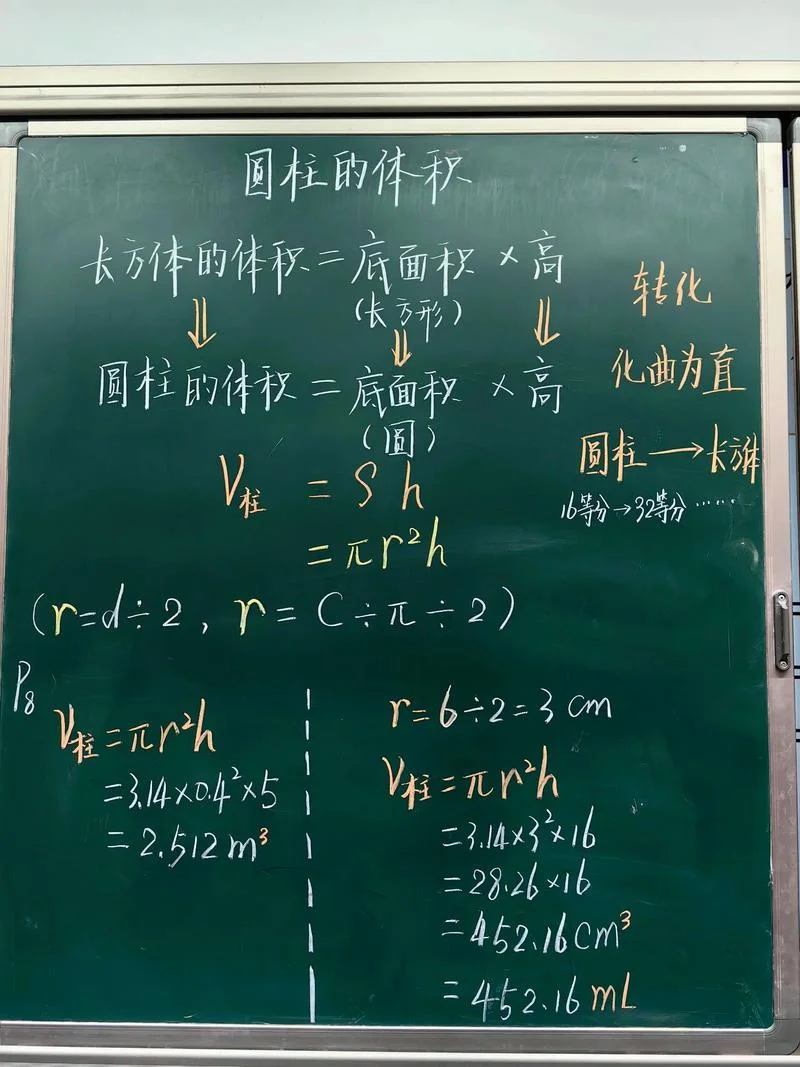 圆柱的体积
长方体的体积=底面积×高
(长方形)
圆柱的体积=底面积×高
(圆)
V柱=Sh
=πr²h
(r=d÷2, r=C÷π÷2)
转化
化曲为直
圆柱→长方体
16等分→32等分……
P8
V柱=πr²h
=3.14×0.4²×5
=2.512m³
r=6÷2=3cm
V柱=πr²h
=3.14×3²×16
=28.26×16
=452.16cm³
=452.16mL